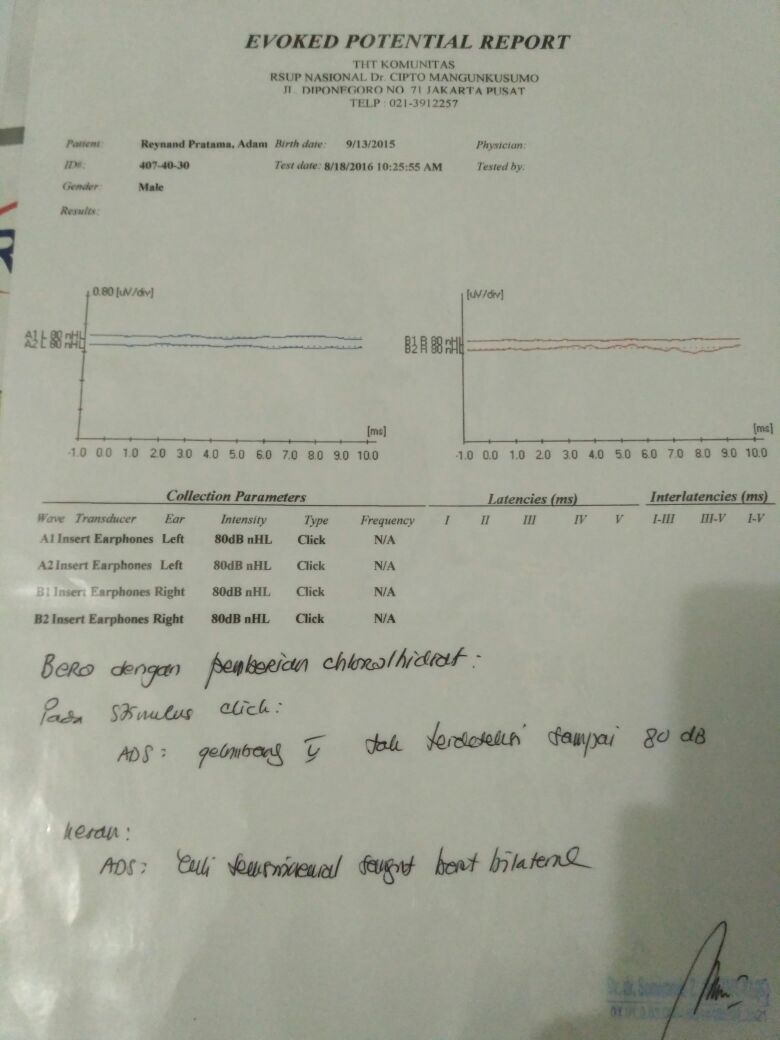 EVOKED POTENTIAL REPORT
THT KOMUNITAS
RSUP NASIONAL Dr. CIPTO MANGUNKUSUMO
JL. DIPONEGORO NO. 71 JAKARTA PUSAT
TELP : 021-3912257
Patient: Reynand Pratama, Adam Birth date: 9/13/2015 Physician:
ID#: 407-40-30 Test date: 8/18/2016 10:25:55 AM Tested by:
Gender: Male
Results:
0.80 [uV/div] [uV/div]
A1 L 80 nHL B1 R 80 nHL
A2 L 80 nHL B2 R 80 nHL
[ms] [ms]
-1.0 0.0 1.0 2.0 3.0 4.0 5.0 6.0 7.0 8.0 9.0 10.0 -1.0 0.0 1.0 2.0 3.0 4.0 5.0 6.0 7.0 8.0 9.0 10.0
Collection Parameters Latencies (ms) Interlatencies (ms)
Wave Transducer Ear Intensity Type Frequency I II III IV V I-III III-V I-V
A1 Insert Earphones Left 80dB nHL Click N/A
A2 Insert Earphones Left 80dB nHL Click N/A
B1 Insert Earphones Right 80dB nHL Click N/A
B2 Insert Earphones Right 80dB nHL Click N/A
Bera dengan pemberian chloralhidrat :
Pada stimulus click :
ADS : gelombang V tak terdeteksi sampai 80 dB
Kesan :
ADS : tuli sensorineural sangat berat bilateral